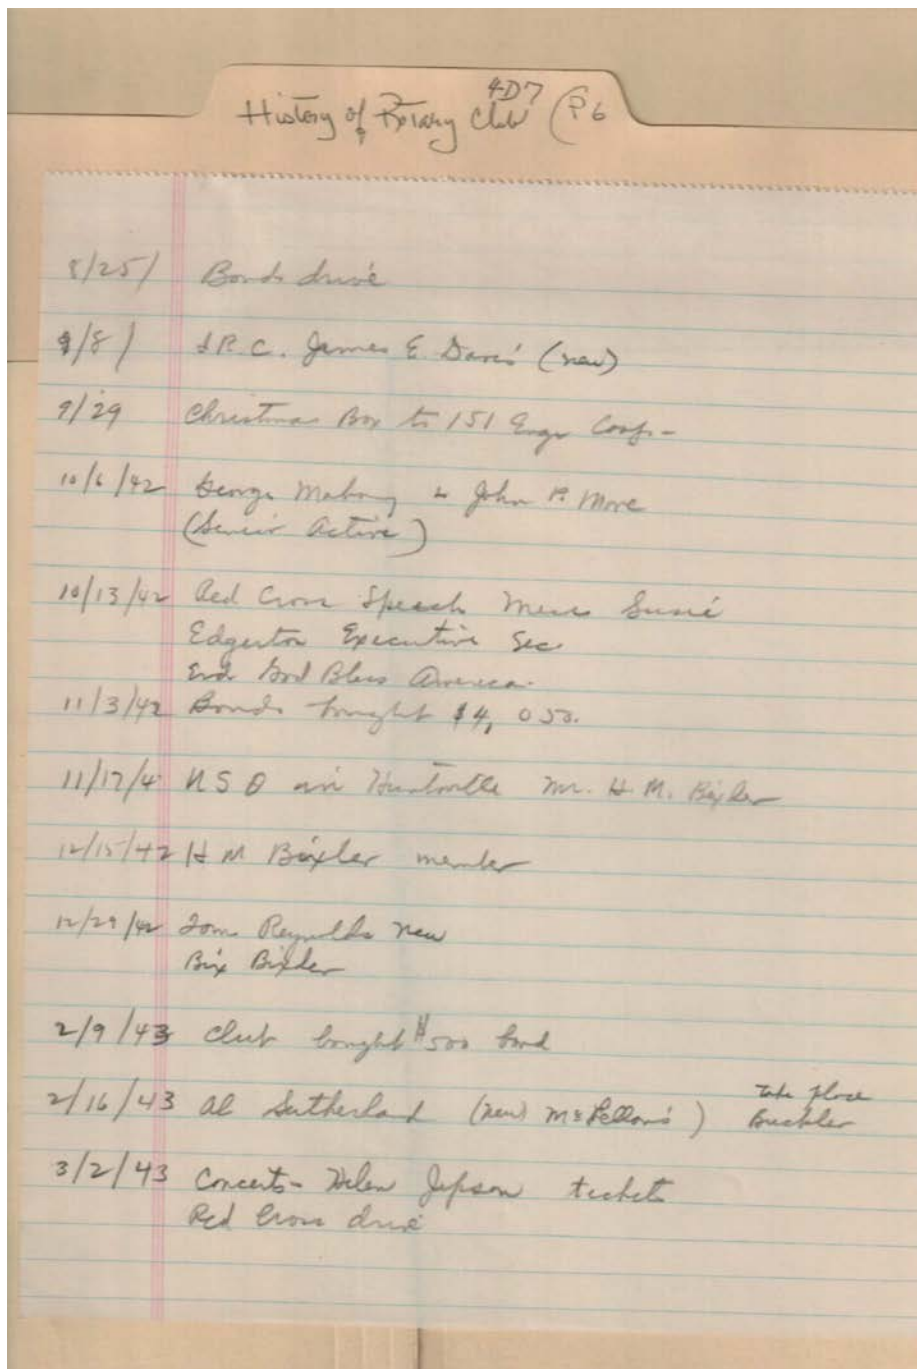 4-D7
History of Rotary Club (P6
8/25/ Bonds drive
9/8/ James E Davis (new)
9/29 Christmas Box to 151 Engr
10/6/42 George Mahoney & John P. More
(Senior Active)
10/13/42 Red Cross Speach Miss Susie
Edgerton Executive Sec.
End God Bless America.
11/3/42 Bonds bought $4, 050.
11/17/4 USO in Huntsville Mr. H. M. Bixler
12/15/42 H M Bixler member
12/29/42 Tom Reynolds new
Bix Bixler
2/9/43 Club bought $500 bond
2/16/43 Al Sutherland (new) take place
3/2/43 Concerts- Helen Jepson tickets
Red Cross drive